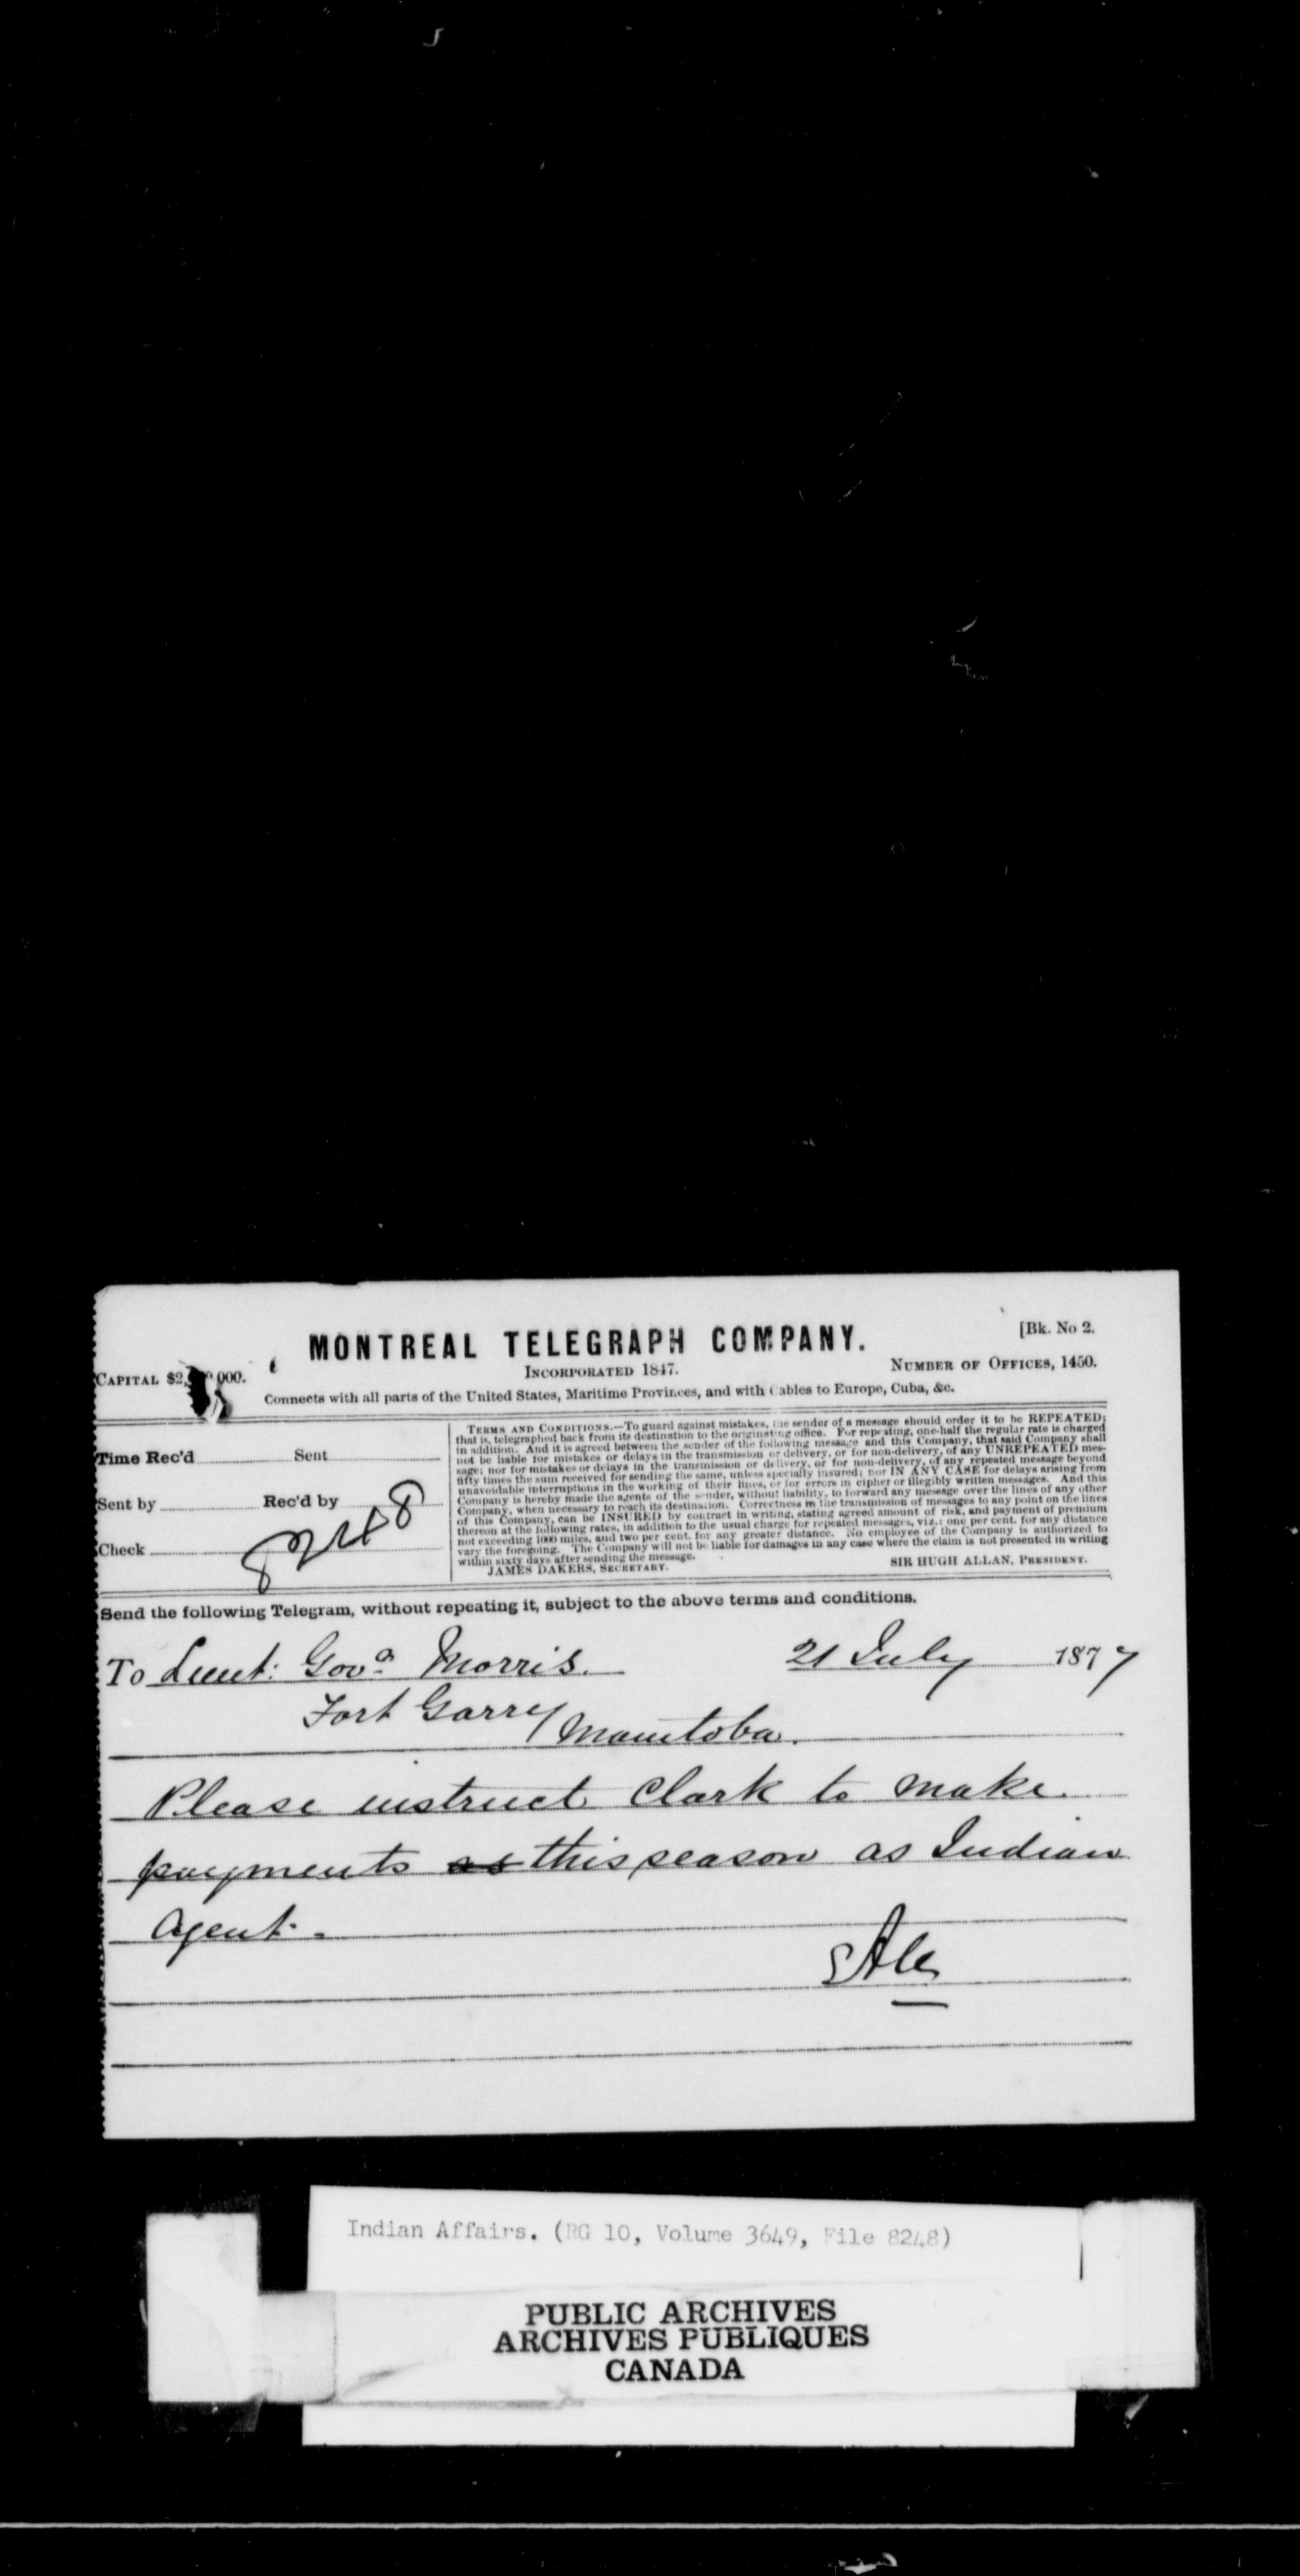 [Bk. No 2.
MONTREAL TELEGRAPH COMPANY.
CAPITAL $2, 000.
INCORPORATED 1847.
NUMBER OF OFFICES, 1450.
Connects with all parts of the United States, Maritime Provinces, and with Cables to Europe, Cuba, &c.
Time Rec'd Sent
Sent by Rec'd by
Check
8248
TERMS AND CONDITIONS.—To guard against mistakes, the sender of a message should order it to be REPEATED;
that is, telegraphed back from its destination to the originating office. For repeating, one-half the regular rate is charged
in addition. And it is agreed between the sender of the following message and this Company, that said Company shall
not be liable for mistakes or delays in the transmission or delivery, or for non-delivery, of any UNREPEATED mes-
sage; nor for mistakes or delays in the transmission or delivery, or for non-delivery, of any repeated message beyond
fifty times the sum received for sending the same, unless specially insured; nor IN ANY CASE for delays arising from
unavoidable interruptions in the working of their lines, or for errors in cipher or illegibly written messages. And this
Company is hereby made the agents of the sender, without liability, to forward any message over the lines of any other
Company, when necessary to reach its destination. Correctness in the transmission of messages to any point on the lines
of this Company, can be INSURED by contract in writing, stating agreed amount of risk, and payment of premium
thereon at the following rates, in addition to the usual charge for repeated messages, viz.: one per cent. for any distance
not exceeding 1000 miles, and two per cent. for any greater distance. No employee of the Company is authorized to
vary the foregoing. The Company will not be liable for damages in any case where the claim is not presented in writing
within sixty days after sending the message.
JAMES DAKERS, SECRETARY.
SIR HUGH ALLAN, PRESIDENT.
Send the following Telegram, without repeating it, subject to the above terms and conditions.
To Lieut: Govr. Morris. 21 July 1877
Fort Garry Manitoba.
Please instruct Clark to make
payments as this season as Indian
Agent.
Indian Affairs. (RG 10, Volume 3649, File 8248)
PUBLIC ARCHIVES
ARCHIVES PUBLIQUES
CANADA